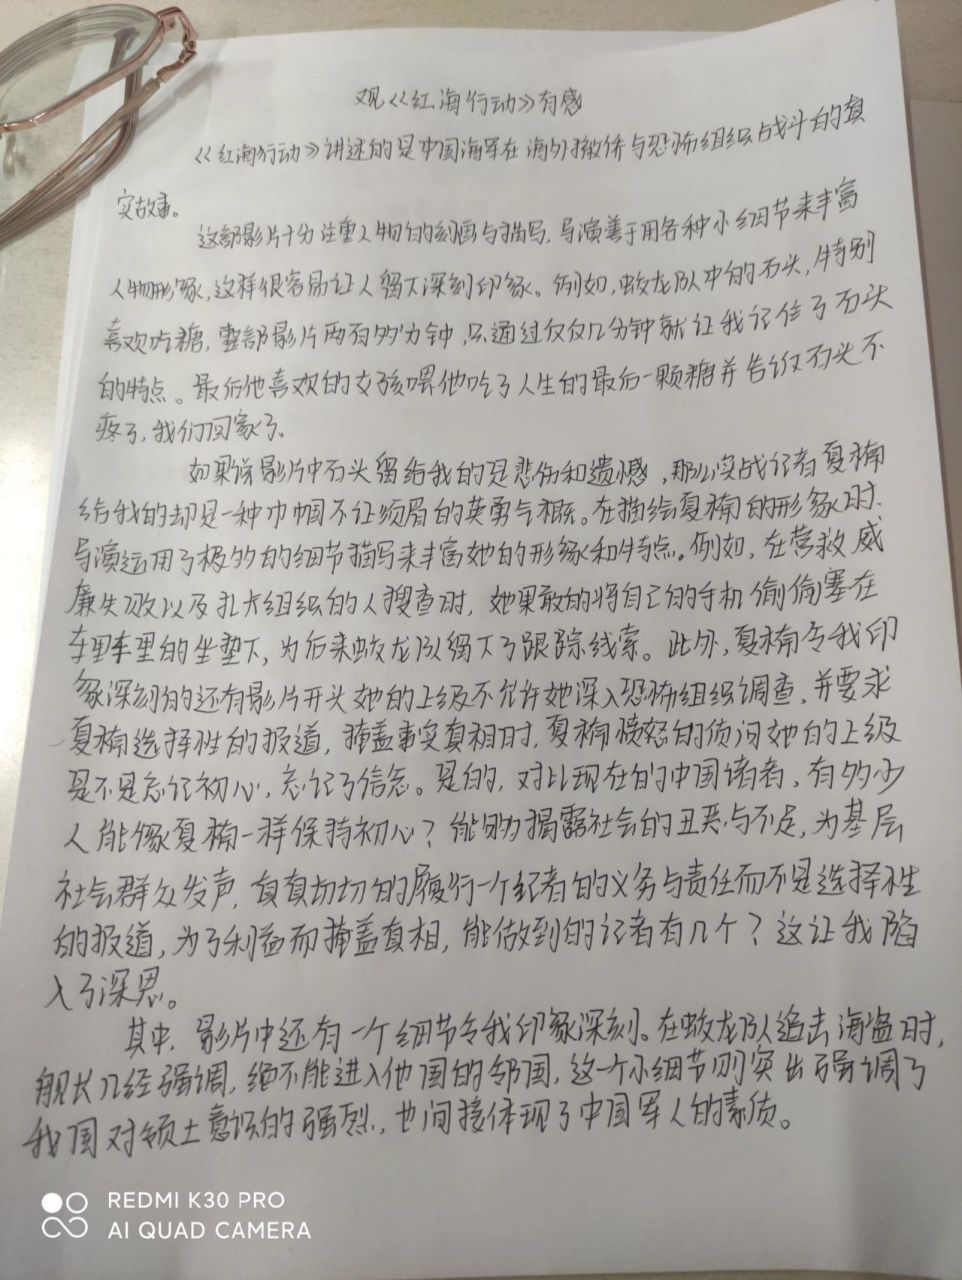 观《红海行动》有感
《红海行动》讲述的是中国海军在海外撤侨与恐怖组织战斗的真
实故事。
这部影片十分注重人物的刻画与描写,导演善于用各种小细节来丰富
人物形象,这样很容易让人留下深刻印象。例如,蛟龙队中的石头,特别
喜欢吃糖,整部影片两百多分钟,只通过仅仅几分钟就让我记住了石头
的特点。最后他喜欢的女孩喂他吃了人生的最后一颗糖并告诉石头不
疼了,我们回家了。
如果说影片中石头留给我的是悲伤和遗憾,那么实战记者夏楠
给我的却是一种巾帼不让须眉的英勇气概。在描绘夏楠的形象时,
导演运用了极多的细节描写来丰富她的形象和特点。例如,在营救威
廉失败以及扎卡组织的人搜查时,她果敢的将自己的手机偷偷塞在
车里的坐垫下,为后来蛟龙队留下了跟踪线索。此外,夏楠令我印
象深刻的还有影片开头她的上级不允许她深入恐怖组织调查,并要求
夏楠选择性的报道,掩盖事实真相时,夏楠愤怒的质问她的上级
是不是忘记初心,忘记了信念。是的,对比现在的中国诸者,有多少
人能像夏楠一样保持初心?能够揭露社会的丑恶与不足,为基层
社会群众发声,真真切切的履行一个记者的义务与责任而不是选择性
的报道,为了利益而掩盖真相,能做到的记者有几个?这让我陷
入了深思。
其中,影片中还有一个细节令我印象深刻。在蛟龙队追击海盗时,
舰长几经强调,绝不能进入他国的邻国,这一个小细节则突出强调了
我国对领土意识的强烈,也间接体现了中国军人的素质。
REDMI K30 PRO
AI QUAD CAMERA